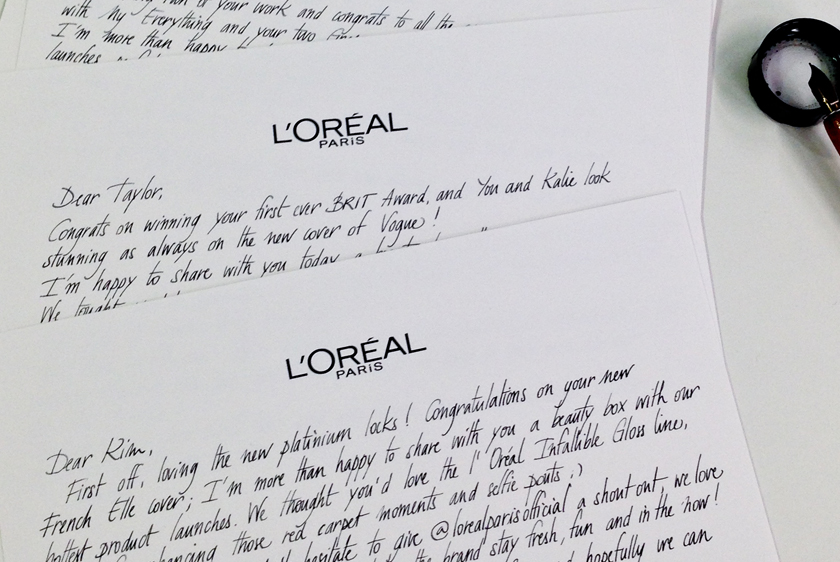 your work and congrats to all the
with My Everything and your two
I'm more than happy
launches
L'ORÉAL
PARIS
Dear Taylor,
Congrats on winning your first ever BRIT Award, and You and Kalie look
stunning as always on the new cover of Vogue!
I'm happy to share with you today a
We tought
L'ORÉAL
PARIS
Dear Kim,
First off, loving the new platinium locks! Congratulations on your new
French Elle cover; I'm more than happy to share with you a beauty box with our
hottest product launches. We thought you'd love the l'Oréal Infallible Gloss line,
those red carpet moments and selfie pouts ;)
hesitate to give @lorealparisofficial a shout out, we love
the brand stay fresh, fun and in the now!
hopefully we can